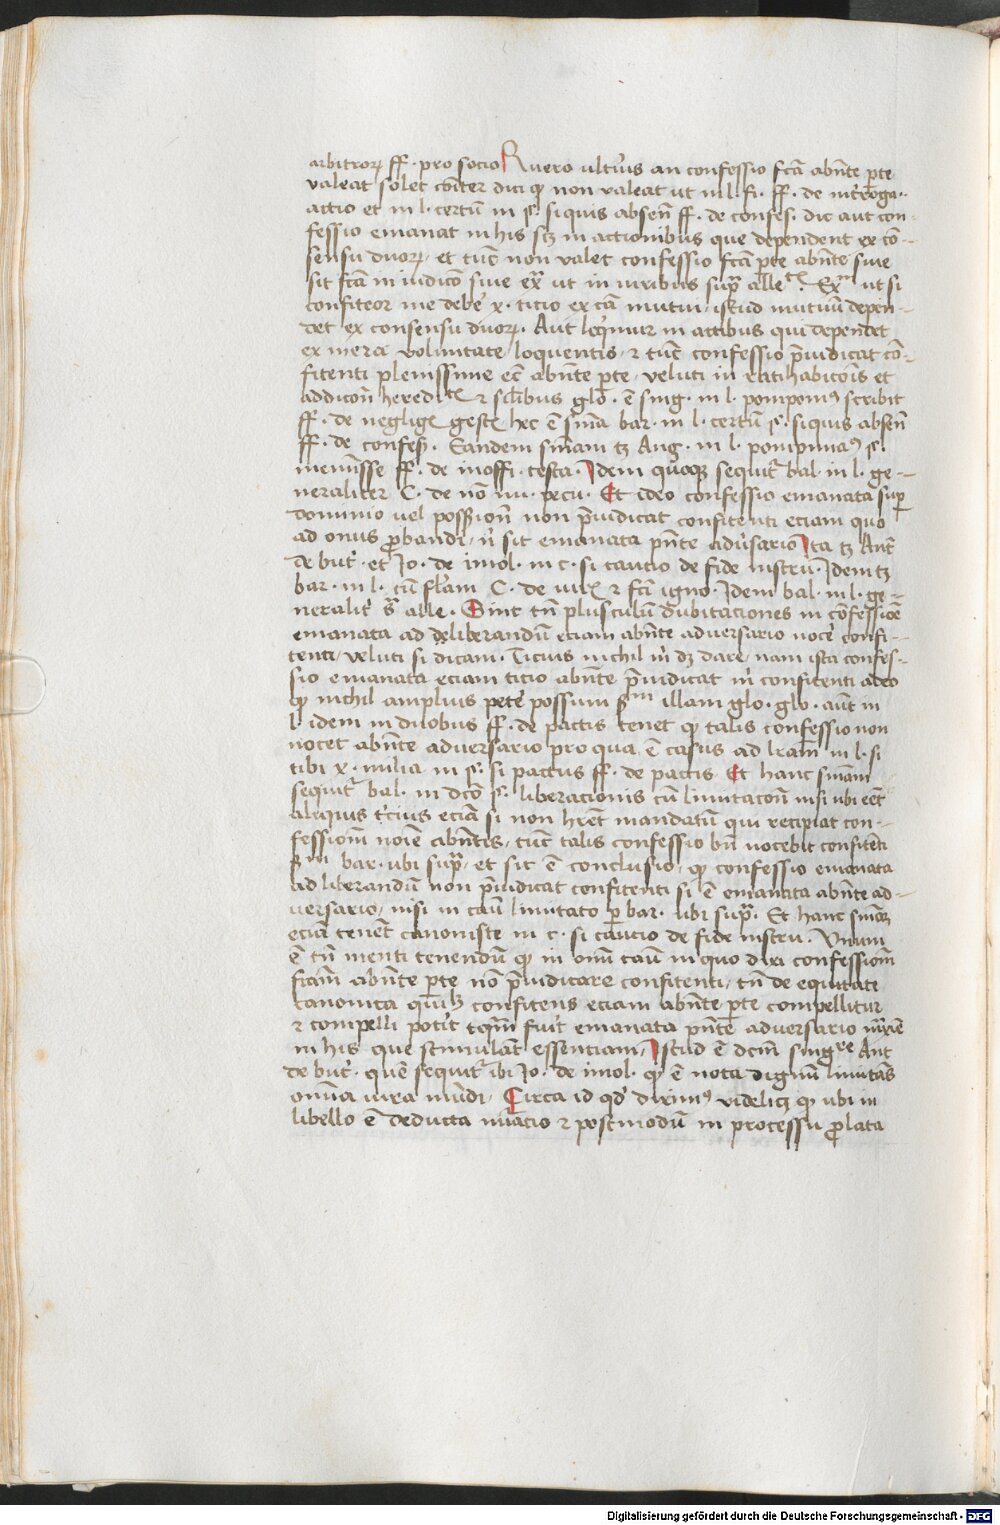 arbitrorꝝ ff. pro socio Ruero ultīus an confessio fcā abn̄te pte
valeat solet cōiter dici ꝙ non valeat ut in l. fi. ff. de interroga.
actio et in l. certū in §. siquis absen̄ ff. de confes. dic aut con-
fessio emanat in his scꝫ in actionibus que dependent ex cō-
sensu duorꝝ, et tūc non valet confessio fcā pte abn̄te siue
sit fcā in iudicio siue ex̄ ut in iuribus supᷓ alle. Exᵐ ut si
confiteor me debe' x. titio ex cā mutui, istud mutuū depen-
det ex consensu duorꝝ. Aut loq̄mur in actibus qui dependēt
ex mera voluntate loquentis, ⁊ tūc confessio p̄iudicat cō-
fitenti plenissime eciā abn̄te pte, veluti in ratihabicōis et
addicōn heredit ⁊ silibus glo. ē sing. in l. pomponiꝰ scribit
ff. de neglig gest hec ē sn̄ia bar. in l. certū §. siquis absen̄
ff. de confess. Eandem sn̄iam tꝫ Ang. in l. pomponiaꝰ §.
meminisse ff. de inoffi. testa. Idem quoqꝫ sequit' bal. in l. ge-
neraliter C. de nō nu. pecu. Et ideo confessio emanata sup
dominio uel possessiōn non p̄iudicat confitenti eciam quo
ad onus probandi, n' sit emanata pn̄te adu'sario Ita tꝫ Ant
de but' et Jo. de imol. in c. si caucio de fide instru. Idem tꝫ
bar. in l. cū fl'am C. de iur ⁊ fcī igno. Idem bal. in l. ge-
neralit' sᷓ alle. Sint tn̄ plusculū dubitaciones in cōfessiōe
emanata ad deliberandū eciam abn̄te aduersario noce' confi-
tenti, veluti si dicam. Ticius nichil m' dꝫ dare, nam ista confes-
sio emanata eciam titio abn̄te p̄iudicat m' confitenti adeo
ꝙ nichil amplius pete' possum sᵐ illam glo. glo. aūt in
l. idem in duobus ff. de pactis tenet ꝙ talis confessio non
nocet abn̄te aduersario pro qua ē casus ad lr̄am in l. si
tibi x. milia in §. si pactus ff. de pactis. Et hanc sn̄iam
sequit' bal. in dcō §. liberacionis cū limitaciōn nisi ubi eēt
aliquis t'cius eciā si non hr̄et mandatū qui recipiat con-
fessiōm noīe abn̄tis, tūc talis confessio bn̄ nocebit confitēti
sᵐ bar. ubi supᷓ, et sic ē conclusio, ꝙ confessio emanata
ad liberandū non p̄iudicat confitenti si ē emanata abn̄te ad-
uersario, nisi in casū limitato p bar. ubi supᷓ. Et hanc sn̄iaꝫ
eciā tenēt canoniste in c. si caucio de fide instru. Unum
ē tn̄ menti tenendū ꝙ in omī casū in quo dixi confessiōm
fcām abn̄te pte nō p̄iudicare confitenti, tn̄ de equitate
canonica confitens eciam abn̄te pte compellitur
⁊ compelli potit tqᷓm fuit emanata pn̄te aduersario maxie
in his que stimulāt essentiam, Istud ē dcm̄ singʳᵉ Ant
de but'. quē sequit' ibi Jo. de imol. ꝙ ē nota dignū limitās
omīa iura mūdi, Circa id qd' diximꝰ videlicꝫ ꝙ ubi in
libello ē deducta nūacio ⁊ postmodū in processu prolata